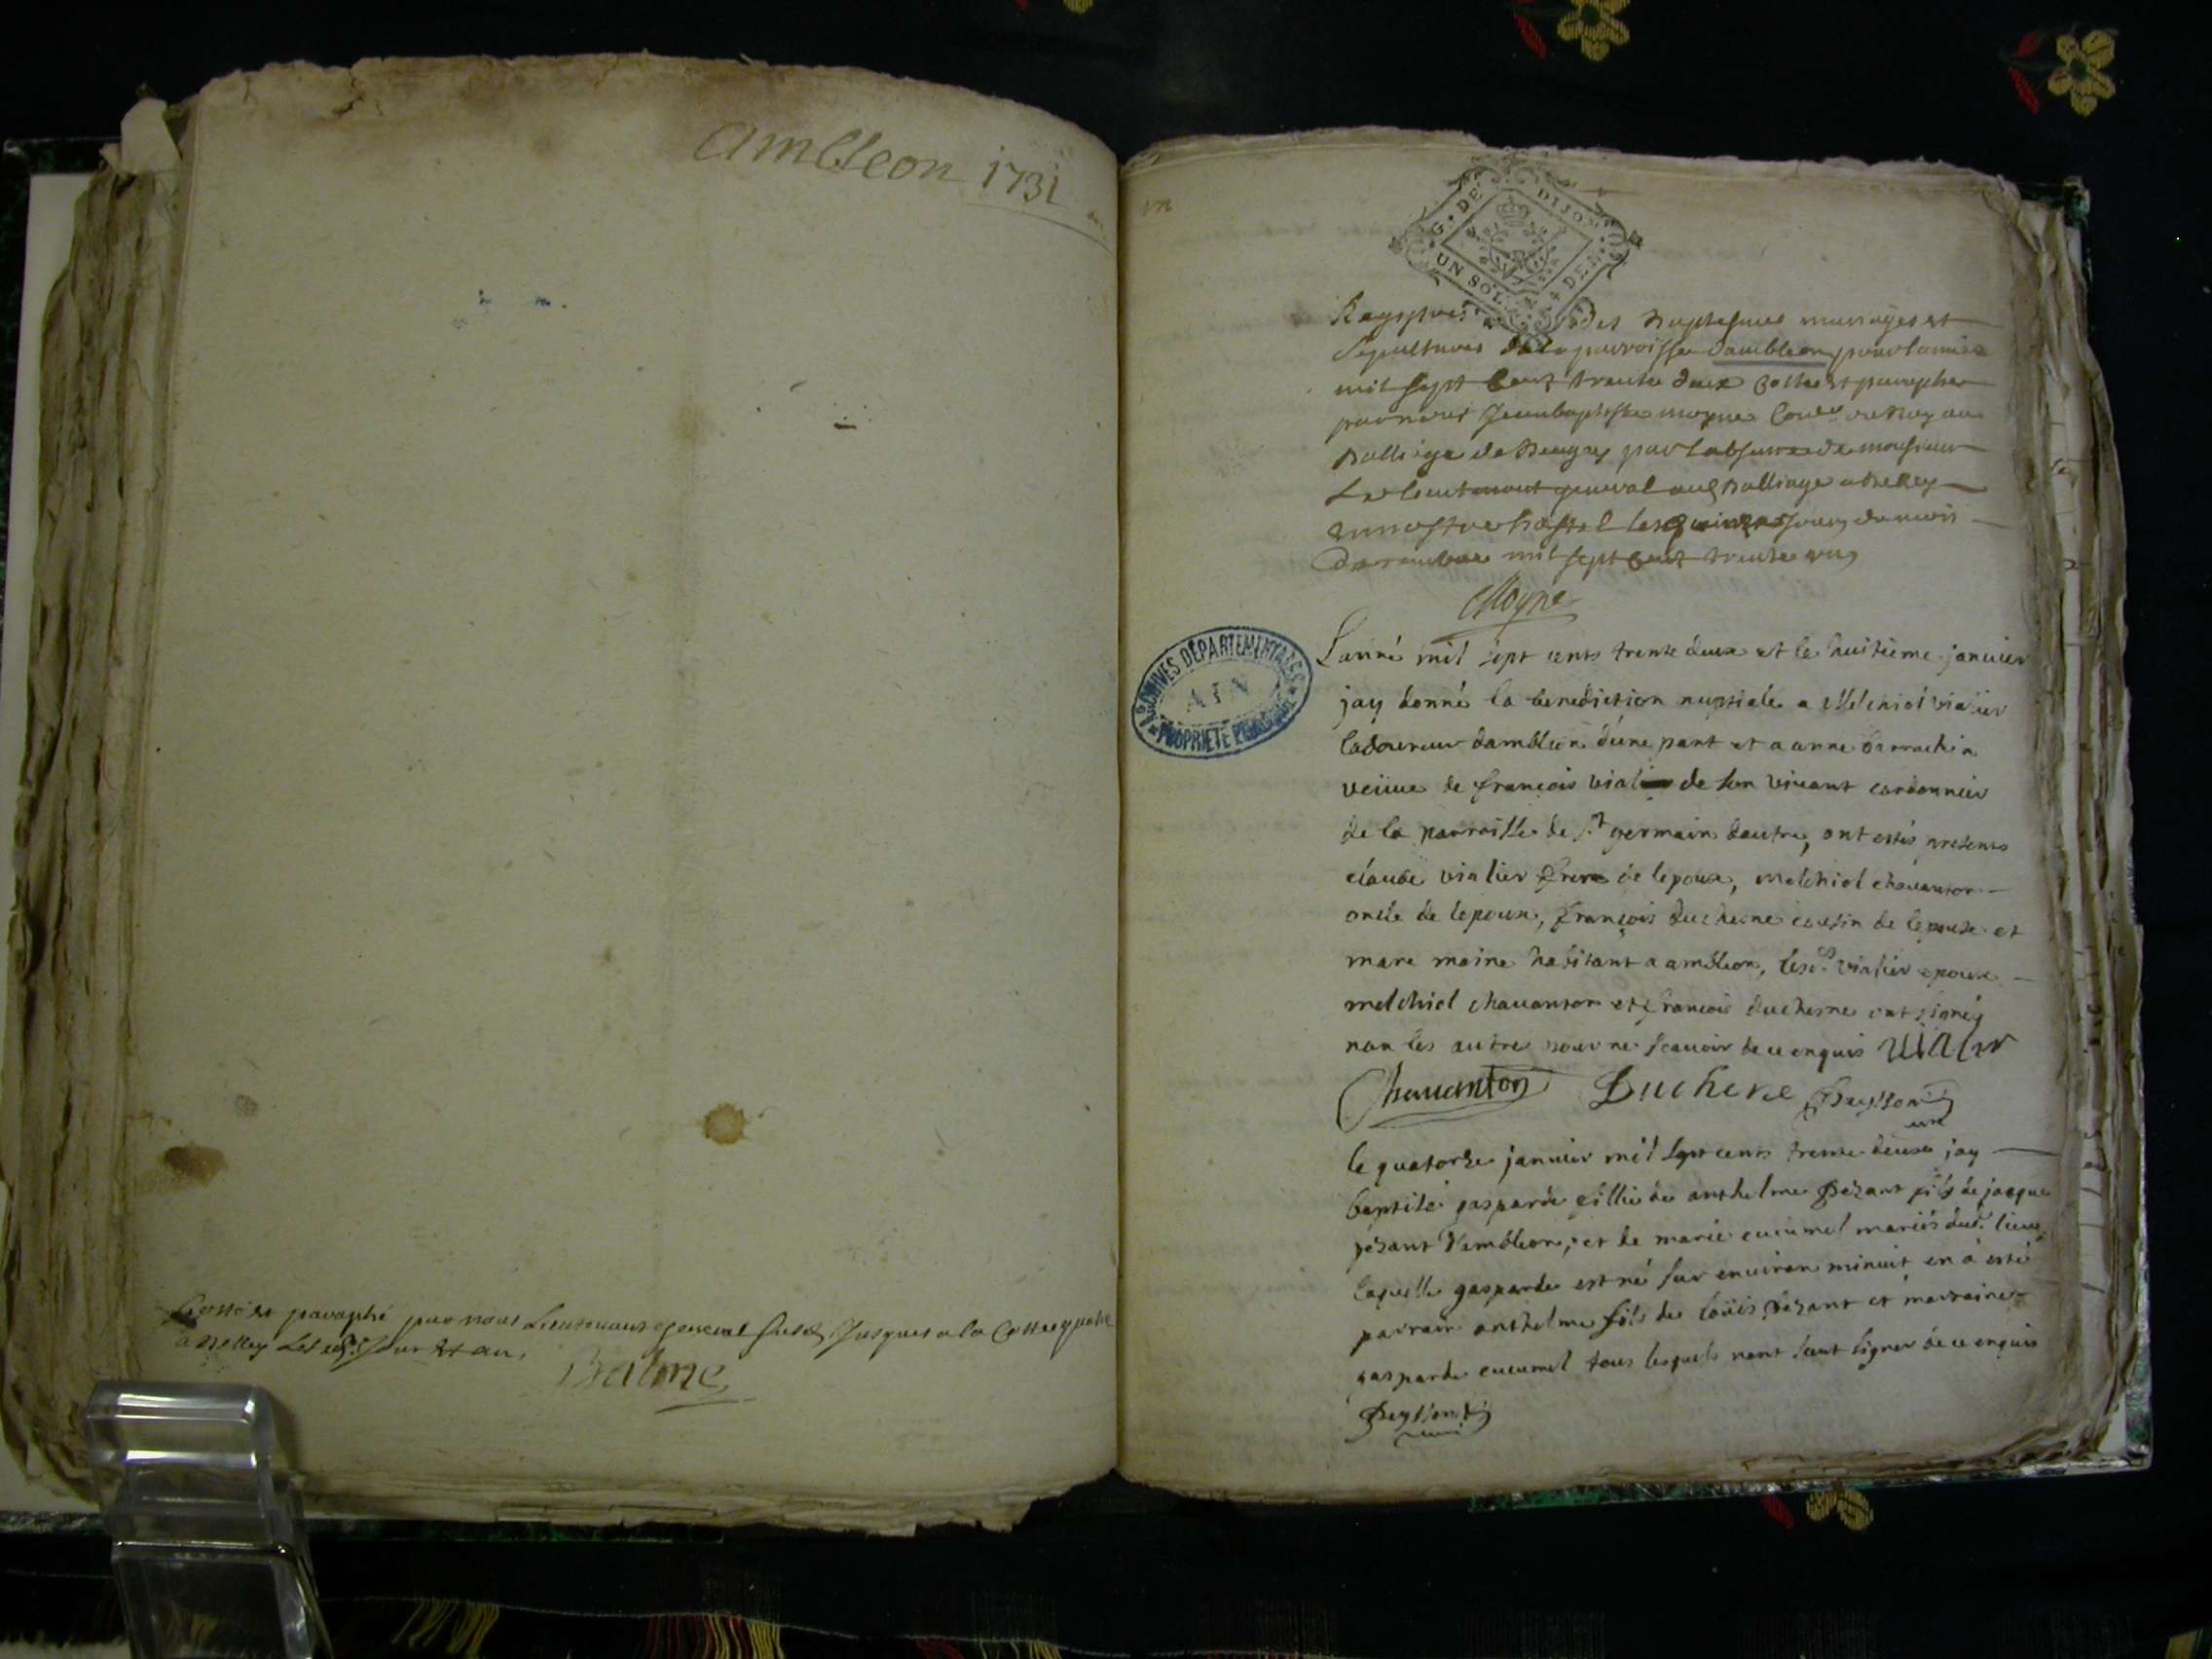 Ambleon 1731
Cotté et paraphé par nous Lieutenant general susd. Jusques a la Cotte quatre
a Belley Les susd. Jour et an.
Balme
un
G. DE DIJON
UN SOL 4 DEN.
Regystres des Baptesmes mariages et
Sepultures de la parroisse dambleon pour lannée
mil sept Cent trente deux Cotté et paraphé
par nous Jean baptiste moyne Coner du Roy au
Balliage de Beugey par labsence de monsieur
Le lieutenant general aud Balliage a Belley
en nostre hostel les quinze Jour du mois
decembre mil sept Cent trente un
Moyne
ARCHIVES DÉPARTEMENTALES
AIN
PROPRIÉTÉ PUBLIQUE
Lanné mil sept cents trente deux et le huitieme janvier
jay donné la benediction nuptiale a Melchiol vialier
laboureur dambleon dune part et a anne
veüue de françois vial de son viuant cordonnier
de la parroisse de st germain dautre, ont estés presents
claude vialier frere de lepoux, melchiol chauanton
oncle de lepoux, françois duchesne cousin de lepouse et
marc moine habitant a ambleon, lesd. vialier epoux
melchiol chauanton et françois duchesne ont signéz
non les autre pour ne scauoir de ce enquis vialier
Chauanton Duchene Peysson
curé
le quatorze januier mil sept cents trente deux jay
baptisé gasparde fillie de anthelme Pézant fils de jacque
pézant d'ambleon; et de marie cucumel mariés dud. lieux
laquelle gasparde est né sur enuiron minuit en à esté
parrain anthelme fils de loüis pézant et marraine
gasparde cucumel tous lesquels nont sceut signer de ce enquis
Peysson
curé